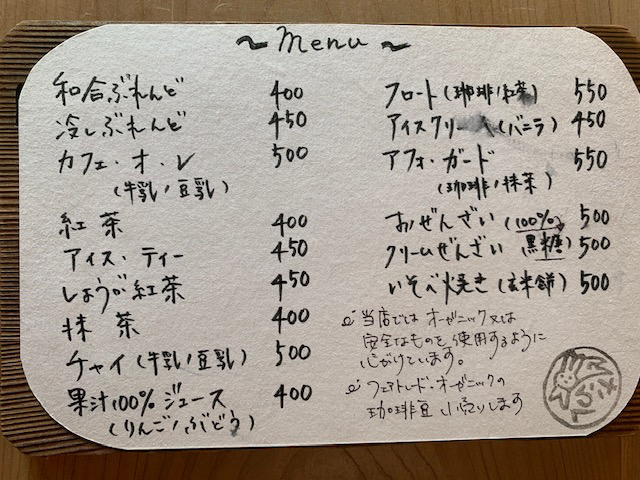 ～Menu～
和合ぶれんど 400
冷しぶれんど 450
カフェ・オ・レ 500
(牛乳/豆乳)
紅茶 400
アイス・ティー 450
しょうが紅茶 450
抹茶 400
チャイ(牛乳/豆乳) 500
果汁100%ジュース 400
(りんご/ぶどう)
フロート(珈琲/紅茶) 550
アイスクリーム(バニラ) 450
アフォ・ガード 550
(珈琲/抹茶)
おぜんざい(100% 500
クリームぜんざい 黒糖) 500
いそべ焼き(玄米餅) 500
当店では オーガニック又は
安全なものを使用するように
心がけています。
フェアトレード・オーガニックの
珈琲豆 小売りします